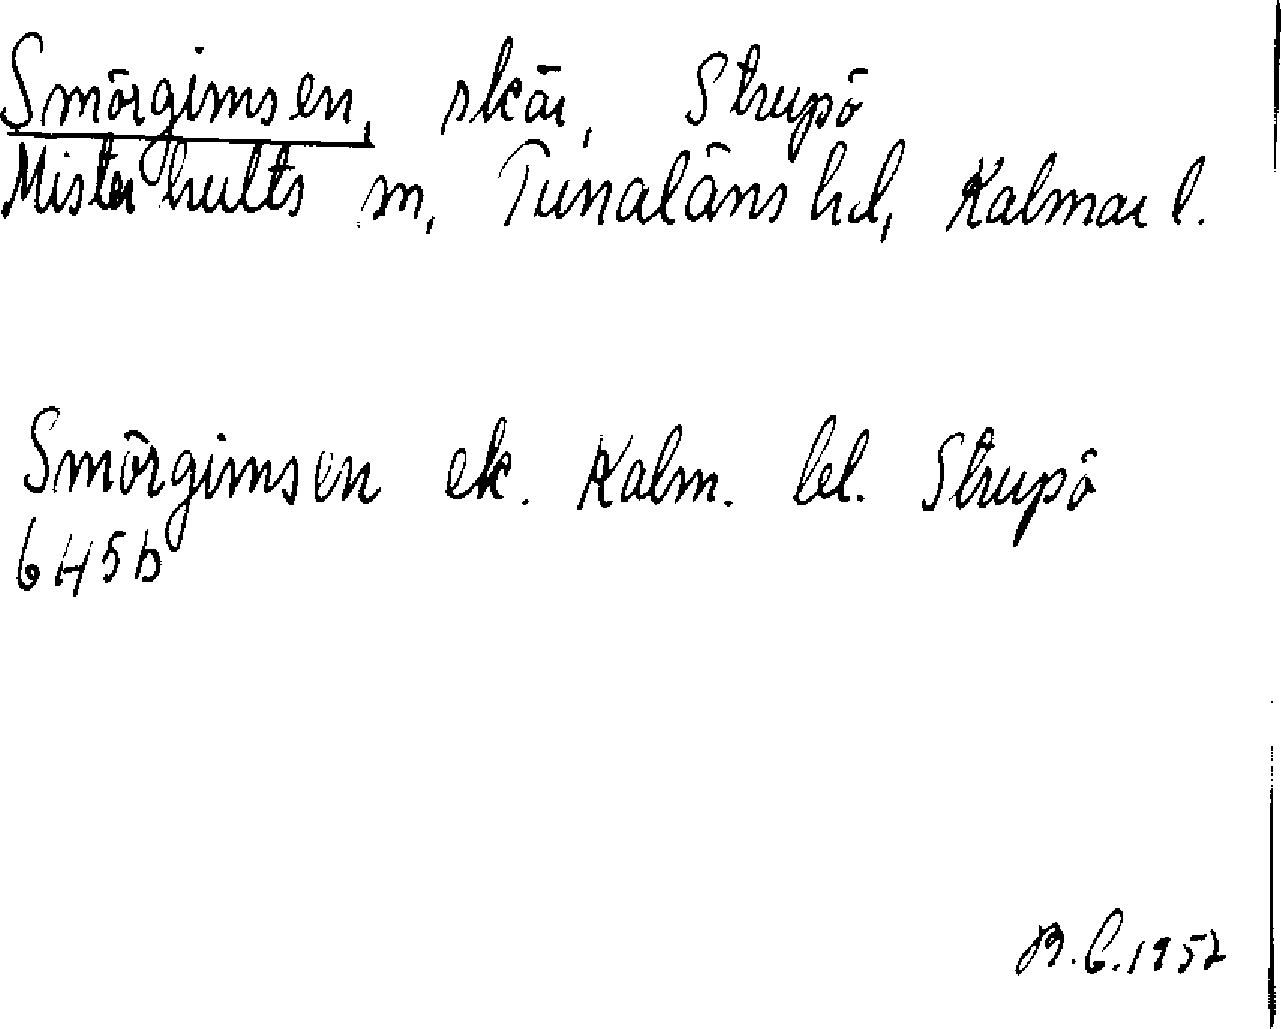 Smörgimsen, skär, Strupö
Misterhults sn, Tunaläns hd, Kalmar l.
Smörgimsen ek. Kalm. bl. Strupö
6H5b
B.E.1957